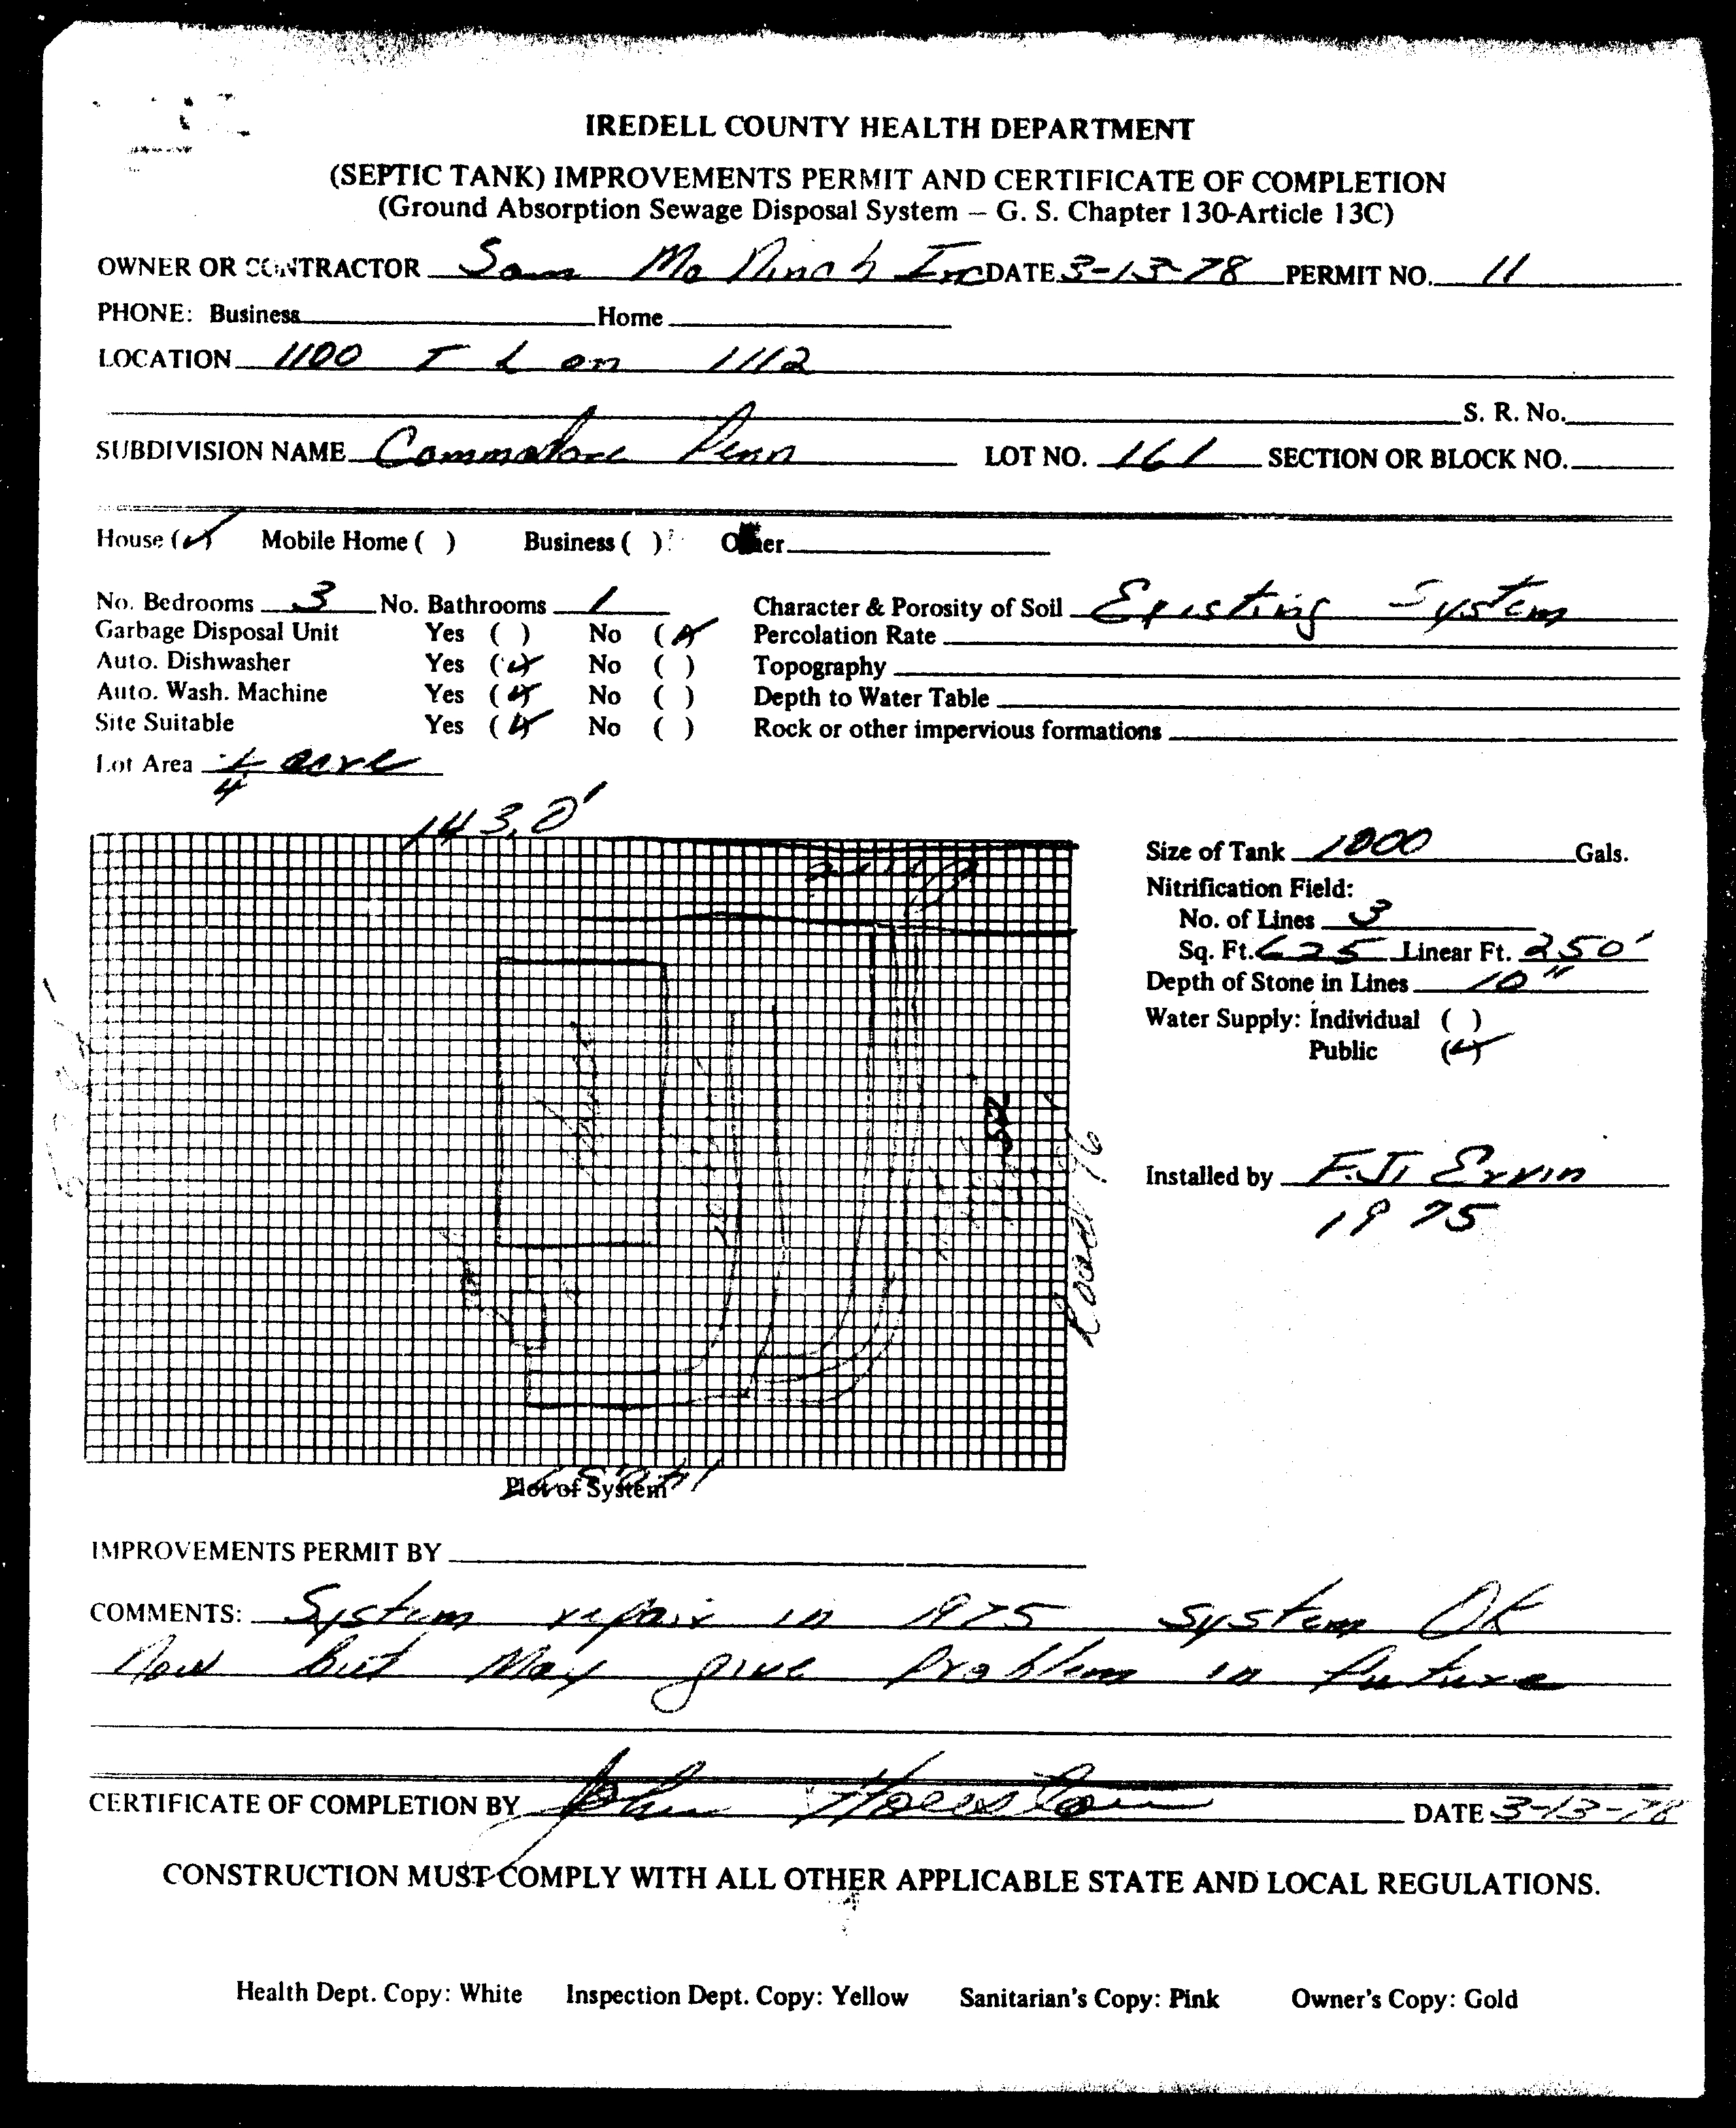 IREDELL COUNTY HEALTH DEPARTMENT
(SEPTIC TANK) IMPROVEMENTS PERMIT AND CERTIFICATE OF COMPLETION
(Ground Absorption Sewage Disposal System – G. S. Chapter 130-Article 13C)
OWNER OR CONTRACTOR Sam Inc DATE 3-13-78 PERMIT NO. 11
PHONE: Business Home
LOCATION 1100 T L on 1112
S. R. No.
SUBDIVISION NAME Commodore Penn LOT NO. 161 SECTION OR BLOCK NO.
House (✓) Mobile Home ( ) Business ( ) Other
No. Bedrooms 3 No. Bathrooms 1 Character & Porosity of Soil Existing System
Garbage Disposal Unit Yes ( ) No (✓) Percolation Rate
Auto. Dishwasher Yes (✓) No ( ) Topography
Auto. Wash. Machine Yes (✓) No ( ) Depth to Water Table
Site Suitable Yes (✓) No ( ) Rock or other impervious formations
Lot Area 1/4 acre
143.0'
Size of Tank 1000 Gals.
Nitrification Field:
No. of Lines 3
Sq. Ft. 625 Linear Ft. 250'
Depth of Stone in Lines 10"
Water Supply: Individual ( )
Public (✓)
House
Road
Installed by F.J. Ervin
1975
Plot of System
IMPROVEMENTS PERMIT BY
COMMENTS: System repair in 1975 system OK
Now but May give Problem in future
CERTIFICATE OF COMPLETION BY John DATE 3-13-78
CONSTRUCTION MUST COMPLY WITH ALL OTHER APPLICABLE STATE AND LOCAL REGULATIONS.
Health Dept. Copy: White Inspection Dept. Copy: Yellow Sanitarian's Copy: Pink Owner's Copy: Gold